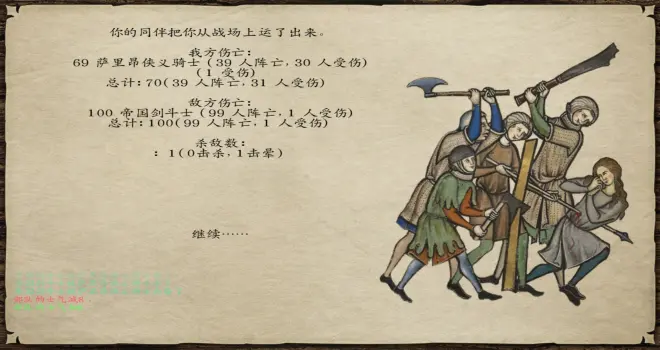 你的同伴把你从战场上运了出来。
我方伤亡:
69 萨里昂侠义骑士 (39 人阵亡, 30 人受伤)
(1 受伤)
总计: 70(39 人阵亡, 31 人受伤)
敌方伤亡:
100 帝国剑斗士 (99 人阵亡, 1 人受伤)
总计: 100(99 人阵亡, 1 人受伤)
杀敌数:
: 1(0击杀, 1击晕)
继续……